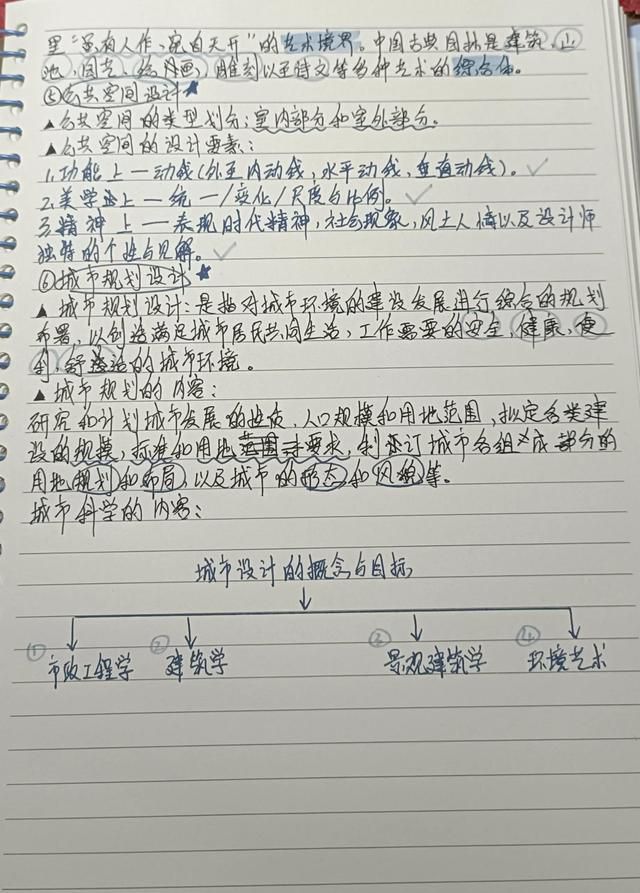 里“虽有人作、宛自天开”的艺术境界。中国古典园林是建筑、山
池、园艺、绘画、雕刻以至诗文等多种艺术的综合体。
⑤公共空间设计★
▲公共空间的类型划分：室内部分和室外部分。
▲公共空间的设计要素：
1.功能上—动线（外至内动线，水平动线，垂直动线）。✓
2.美学上—统一/变化/尺度与比例。✓
3.精神上—表现时代精神，社会现象，风土人情以及设计师
独特的个性与见解。✓
⑥城市规划设计★
▲城市规划设计：是指对城市环境的建设发展进行综合的规划
布署，以创造满足城市居民共同生活、工作需要的安全，健康，便
利，舒适的城市环境。
▲城市规划的内容：
研究和计划城市发展的性质，人口规模和用地范围，拟定各类建
设的规模，标准和用地要求，制订城市各组成部分的
用地规划和布局，以及城市的形态和风貌等。
城市科学的内容：
城市设计的概念与目标
①市政工程学 ②建筑学 ③景观建筑学 ④环境艺术